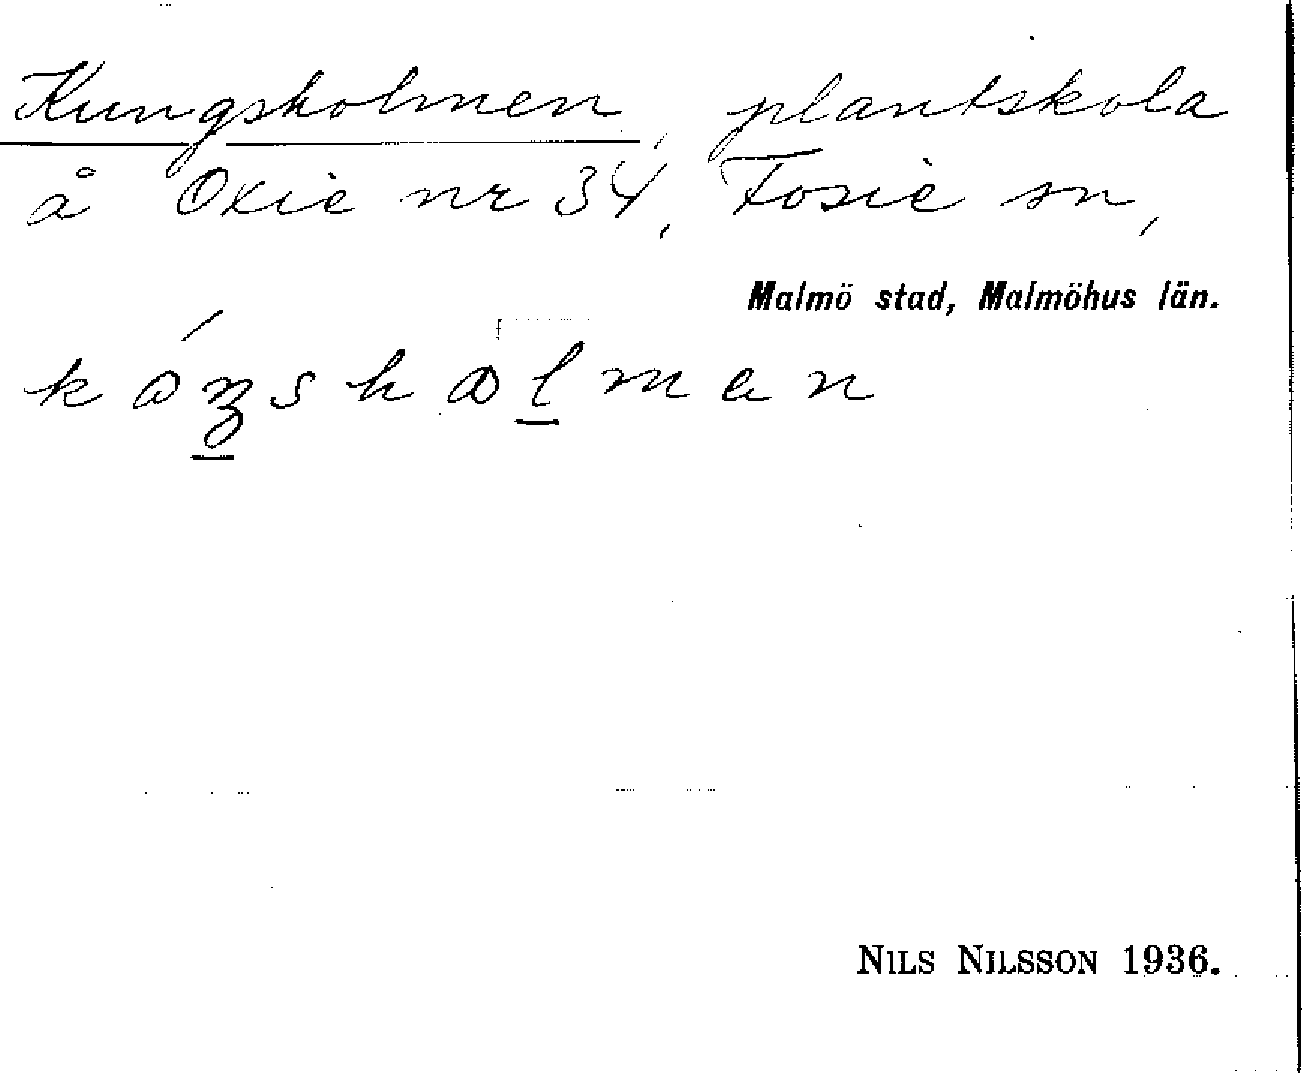 Kungsholmen, plantskola
å Oxie nr 34, Fosie sn,
Malmö stad, Malmöhus län.
NILS NILSSON 1936.